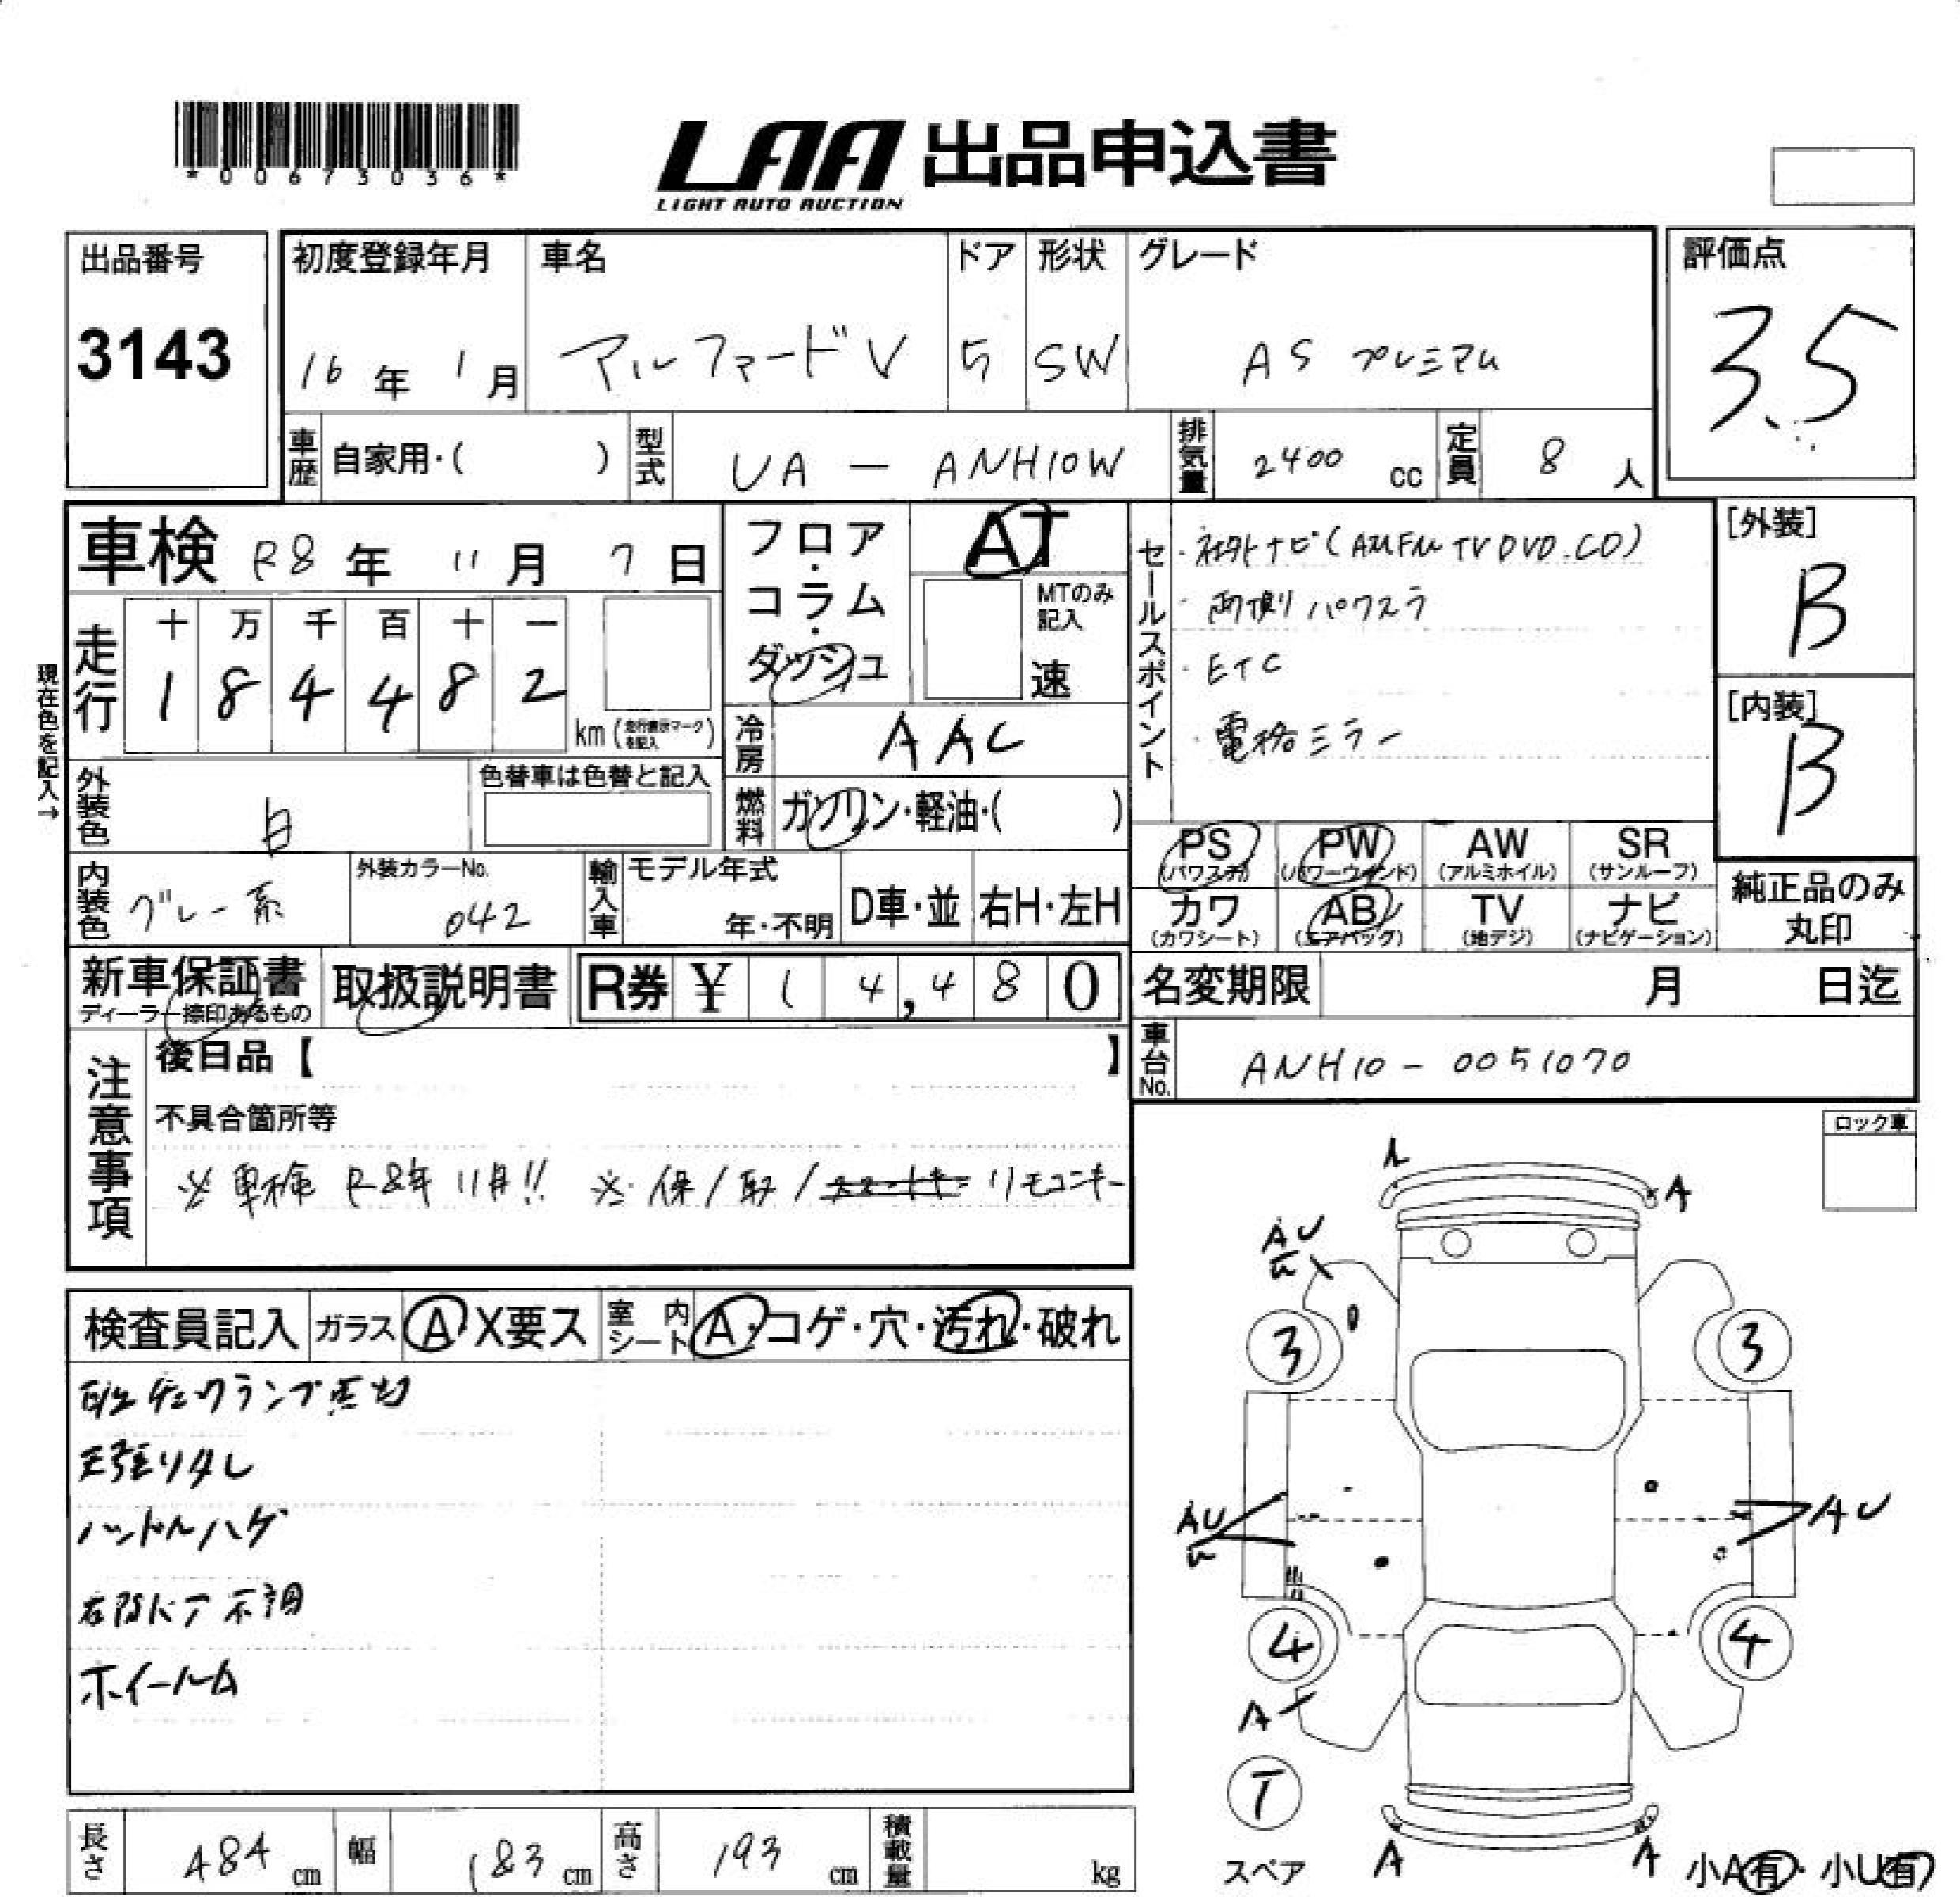 *00673036*
LAA 出品申込書
LIGHT AUTO AUCTION
出品番号
3143
初度登録年月
16年1月
車名
アルファードV
ドア
5
形状
SW
グレード
AS プレミアム
評価点
3.5
車歴
自家用・( )
型式
UA - ANH10W
排気量
2400 cc
定員
8 人
車検 R8年 11月 7日
フロア・コラム・ダッシュ
AT
MTのみ記入
速
セールスポイント
・社外ナビ(AM FM TV DVD.CD)
・両側パワスラ
・ETC
・電格ミラー
[外装]
B
[内装]
B
現在色を記入→
走行
十万千百十一
184482
km (走行表示マークを記入)
冷房
AAC
外装色
白
色替車は色替と記入
燃料
ガソリン・軽油・( )
PS
(パワステ)
PW
(パワーウインド)
AW
(アルミホイル)
SR
(サンルーフ)
内装色
グレー系
外装カラーNo.
042
輸入車
モデル年式
年・不明
D車・並
右H・左H
カワ
(カワシート)
AB
(エアバッグ)
TV
(地デジ)
ナビ
(ナビゲーション)
純正品のみ
丸印
新車保証書
ディーラー捺印あるもの
取扱説明書
R券 ¥ 14,480
名変期限
月 日迄
注意事項
後日品【 】
車台No.
ANH10-0051070
不具合箇所等
※車検 R8年11月!! ※保/取/スマートキー リモコンキー
ロック車
検査員記入
ガラス
A・X要ス
室内シート
A・コゲ・穴・汚れ・破れ
天張りタレ
ハンドルハゲ
ホイールA
A
A
AU
3
3
AU
AU
4
4
A
T
スペア
A
A
小A有・小U有
長さ
484 cm
幅
183 cm
高さ
193 cm
積載量
kg